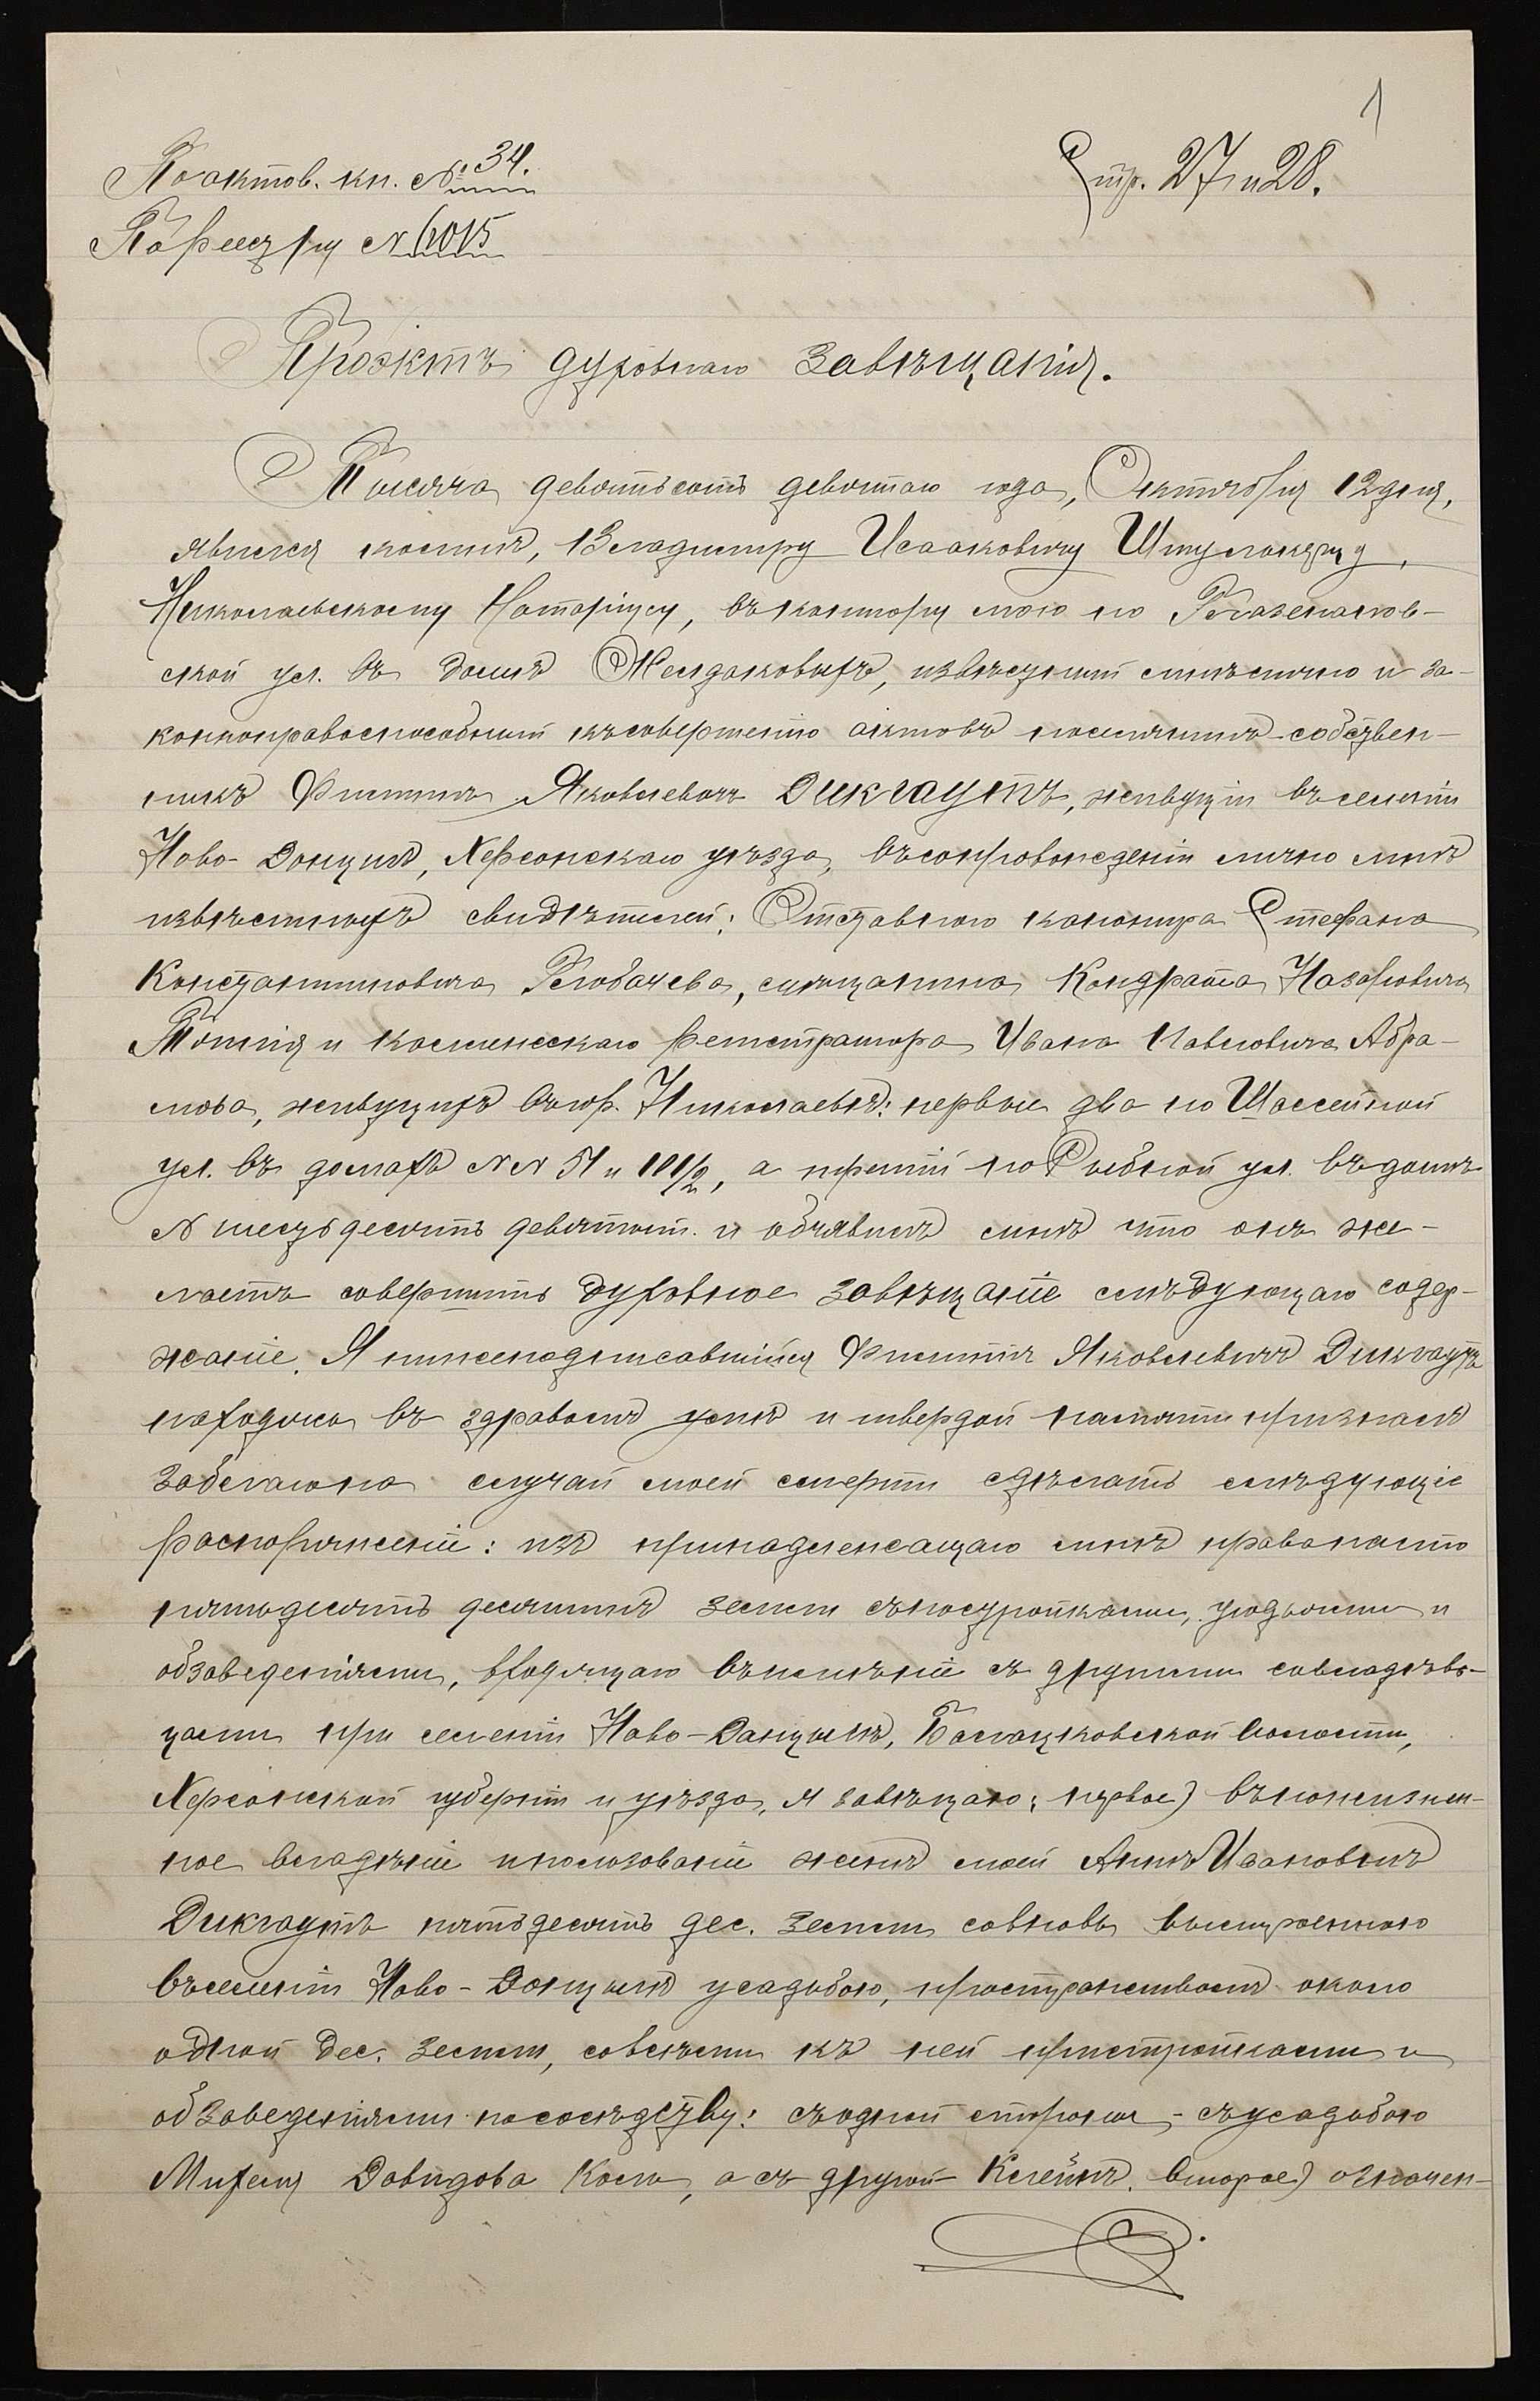 1
По актов. кн. № 34.
Стр. 27 и 28.
По реестру № 6015
Проэктъ духовнаго завѣщанія.
Тысяча девятьсотъ девятаго года, Октября 12 дня,
явился ко мнѣ, Владиміру Исааковичу
Николаевскому Нотаріусу, въ контору мою по Глазенапов-
ской ул. въ домѣ извѣстный мнѣ лично и за-
конноправоспособный къ совершенію актовъ поселянинъ-собствен-
никъ Филиппъ Яковлевичъ Дикгаутъ, живущій въ селеніи
Ново-Данцигѣ, Херсонскаго уѣзда, въ сопровожденіи лично мнѣ
извѣстныхъ свидѣтелей: Отставного канонира Стефана
Константиновича Глобачева, мѣщанина Кондрата Назаровича
и коллежскаго регистратора Ивана Павловича Абра-
мова, живущихъ въ гор. Николаевѣ: первые два по Шоссейной
ул. въ домахъ №№ 51 и 101/2, а третій по Рыбной ул. въ домѣ
№ шестьдесятъ девятомъ и объявилъ мнѣ что онъ же-
лаетъ совершить духовное завѣщаніе слѣдующаго содер-
жаніе. Я нижеподписавшійся Филиппъ Яковлевичъ Дикгаутъ
находясь въ здравомъ умѣ и твердой памяти призналъ
за благо на случай моей смерти сдѣлать слѣдующіе
распоряженіе: изъ принадлежащаго мнѣ права на сто
пятьдесятъ десятинъ земли съ постройками, угодьями и
обзаведеніями, входящаго въ имѣніе съ другими совладѣль-
цами при селеніи Ново-Данцигѣ, Балацковской волости,
Херсонской губерніи и уѣзда, я завѣщаю: первое) въ пожизнен-
ное владѣніе и пользованіе женѣ моей Аннѣ Ивановнѣ
Дикгаутъ пятьдесятъ дес. земли со вновь выстроенною
въ селеніи Ново-Данцигѣ усадьбою, пространствомъ около
одной дес. земли, со всѣми къ ней пристройками и
обзаведеніями по сосѣдству: съ одной стороны - съ усадьбою
Михеля Давидова Коля, а съ другой - Клейнъ. второе) означен-